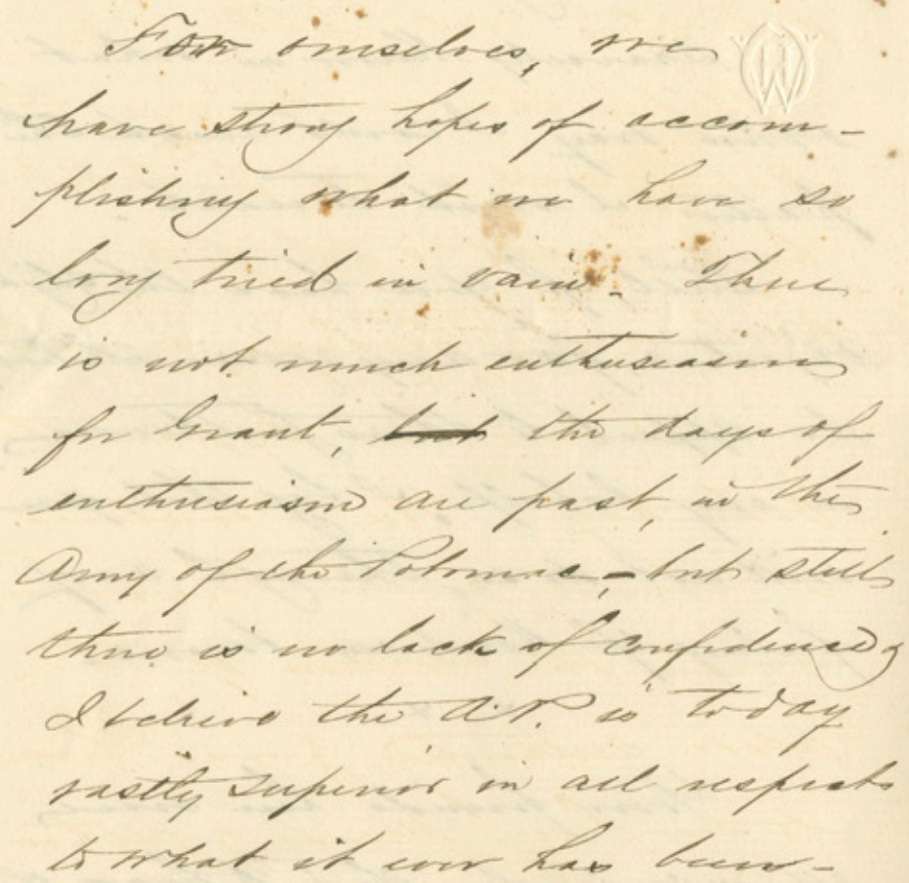 For ourselves, we
have strong hopes of accom-
plishing what we have so
long tried in vain. There
is not much enthusiasm
for Grant, but the days of
enthusiasm are past, in the
Army of the Potomac,- but still
there is no lack of confidence &
I believe the A.P. is today
vastly superior in all respects
to what it ever has been-